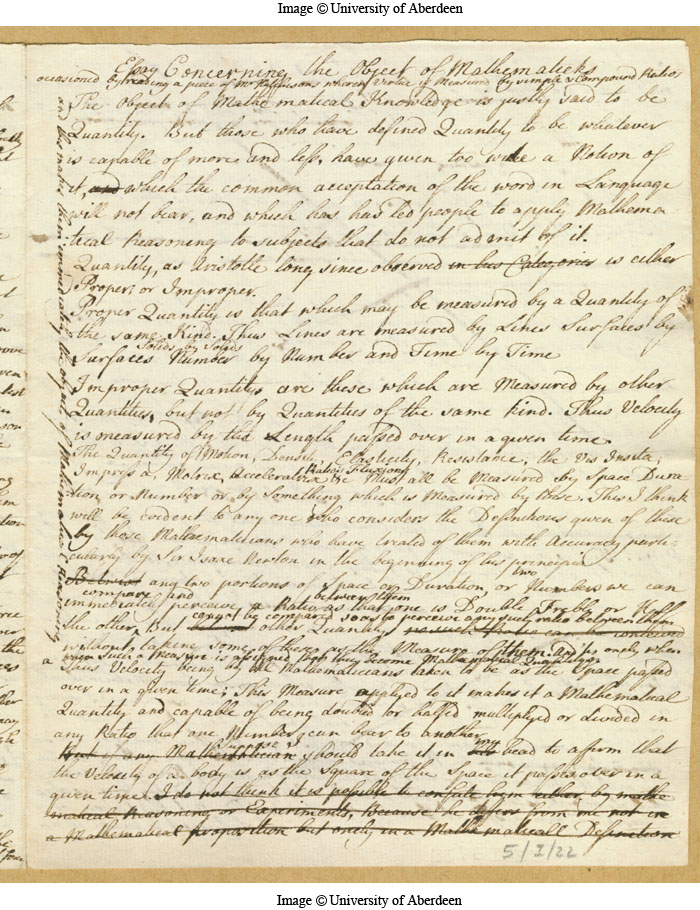 Image © University of Aberdeen
Essay Concerning the Object of Mathematicks
occasioned by reading a piece of Mr Hutchisons where Virtue is Measured by simple & Compound Ratios
The Object of Mathematical Knowledge is justly said to be
Quantity. But those who have defined Quantity to be whatever
is capable of more and less, have given too wide a Notion of
it, and which the common acceptation of the word in Language
will not bear, and which has has led people to apply Mathema
tical Reasoning to subjects that do not admit of it.
Quantity, as Aristotle long since observed in his Categories is either
Proper, or Improper.
Proper Quantity is that which may be measured by a Quantity of
the same Kind. Thus Lines are measured by Lines Surfaces by
Solids by Solids
Surfaces Number by Number and Time by Time
Improper Quantitys are these which are Measured by other
Quantities, but not by Quantities of the same kind. Thus Velocity
is measured by the Length passed over in a given time.
The Quantity of Motion, Density, Elasticity, Resistance, the Vis Insita,
Impressa, Motrix, Acceleratrix Ratios Fluxions &c Must all be Measured by Space Dura
tion or Number or by Something which is Measured by these. This I think
will be evident to any one who considers the Definitions given of these
by those Mathematicians who have treated of them with Accuracy parti-
cularly by Sir Isaac Newton in the beginning of his principia
any two portions of Space or Duration or two Numbers we can
compare and between them
immediately perceive a Ratio as that one is Double Treble or Half
cannot be compared so as to perceive any such ratio between them
the other. But other Quantity
without taking some of these as the Measure of them and its onely when
a when such a Measure is assigned that they become Mathematical Quantitys
Thus Velocity being by all Mathematicians taken to be as the Space passed
over in a given time; This Measure applyed to it makes it a Mathematical
Quantity and capable of being doubled or halfed multiplyed or divided in
any Ratio that one Number can bear to another
Suppose I my
But if any Mathematician should take it in his head to affirm that
the Velocity of a body is as the Square of the Space it passes over in a
given time. I do not think it is possible to confute him either by mathe
matical Reasoning or Experiments, Because he differs from me not in
a Mathematical proposition but onely in a Mathematicall Definition
5/I/22
Image © University of Aberdeen